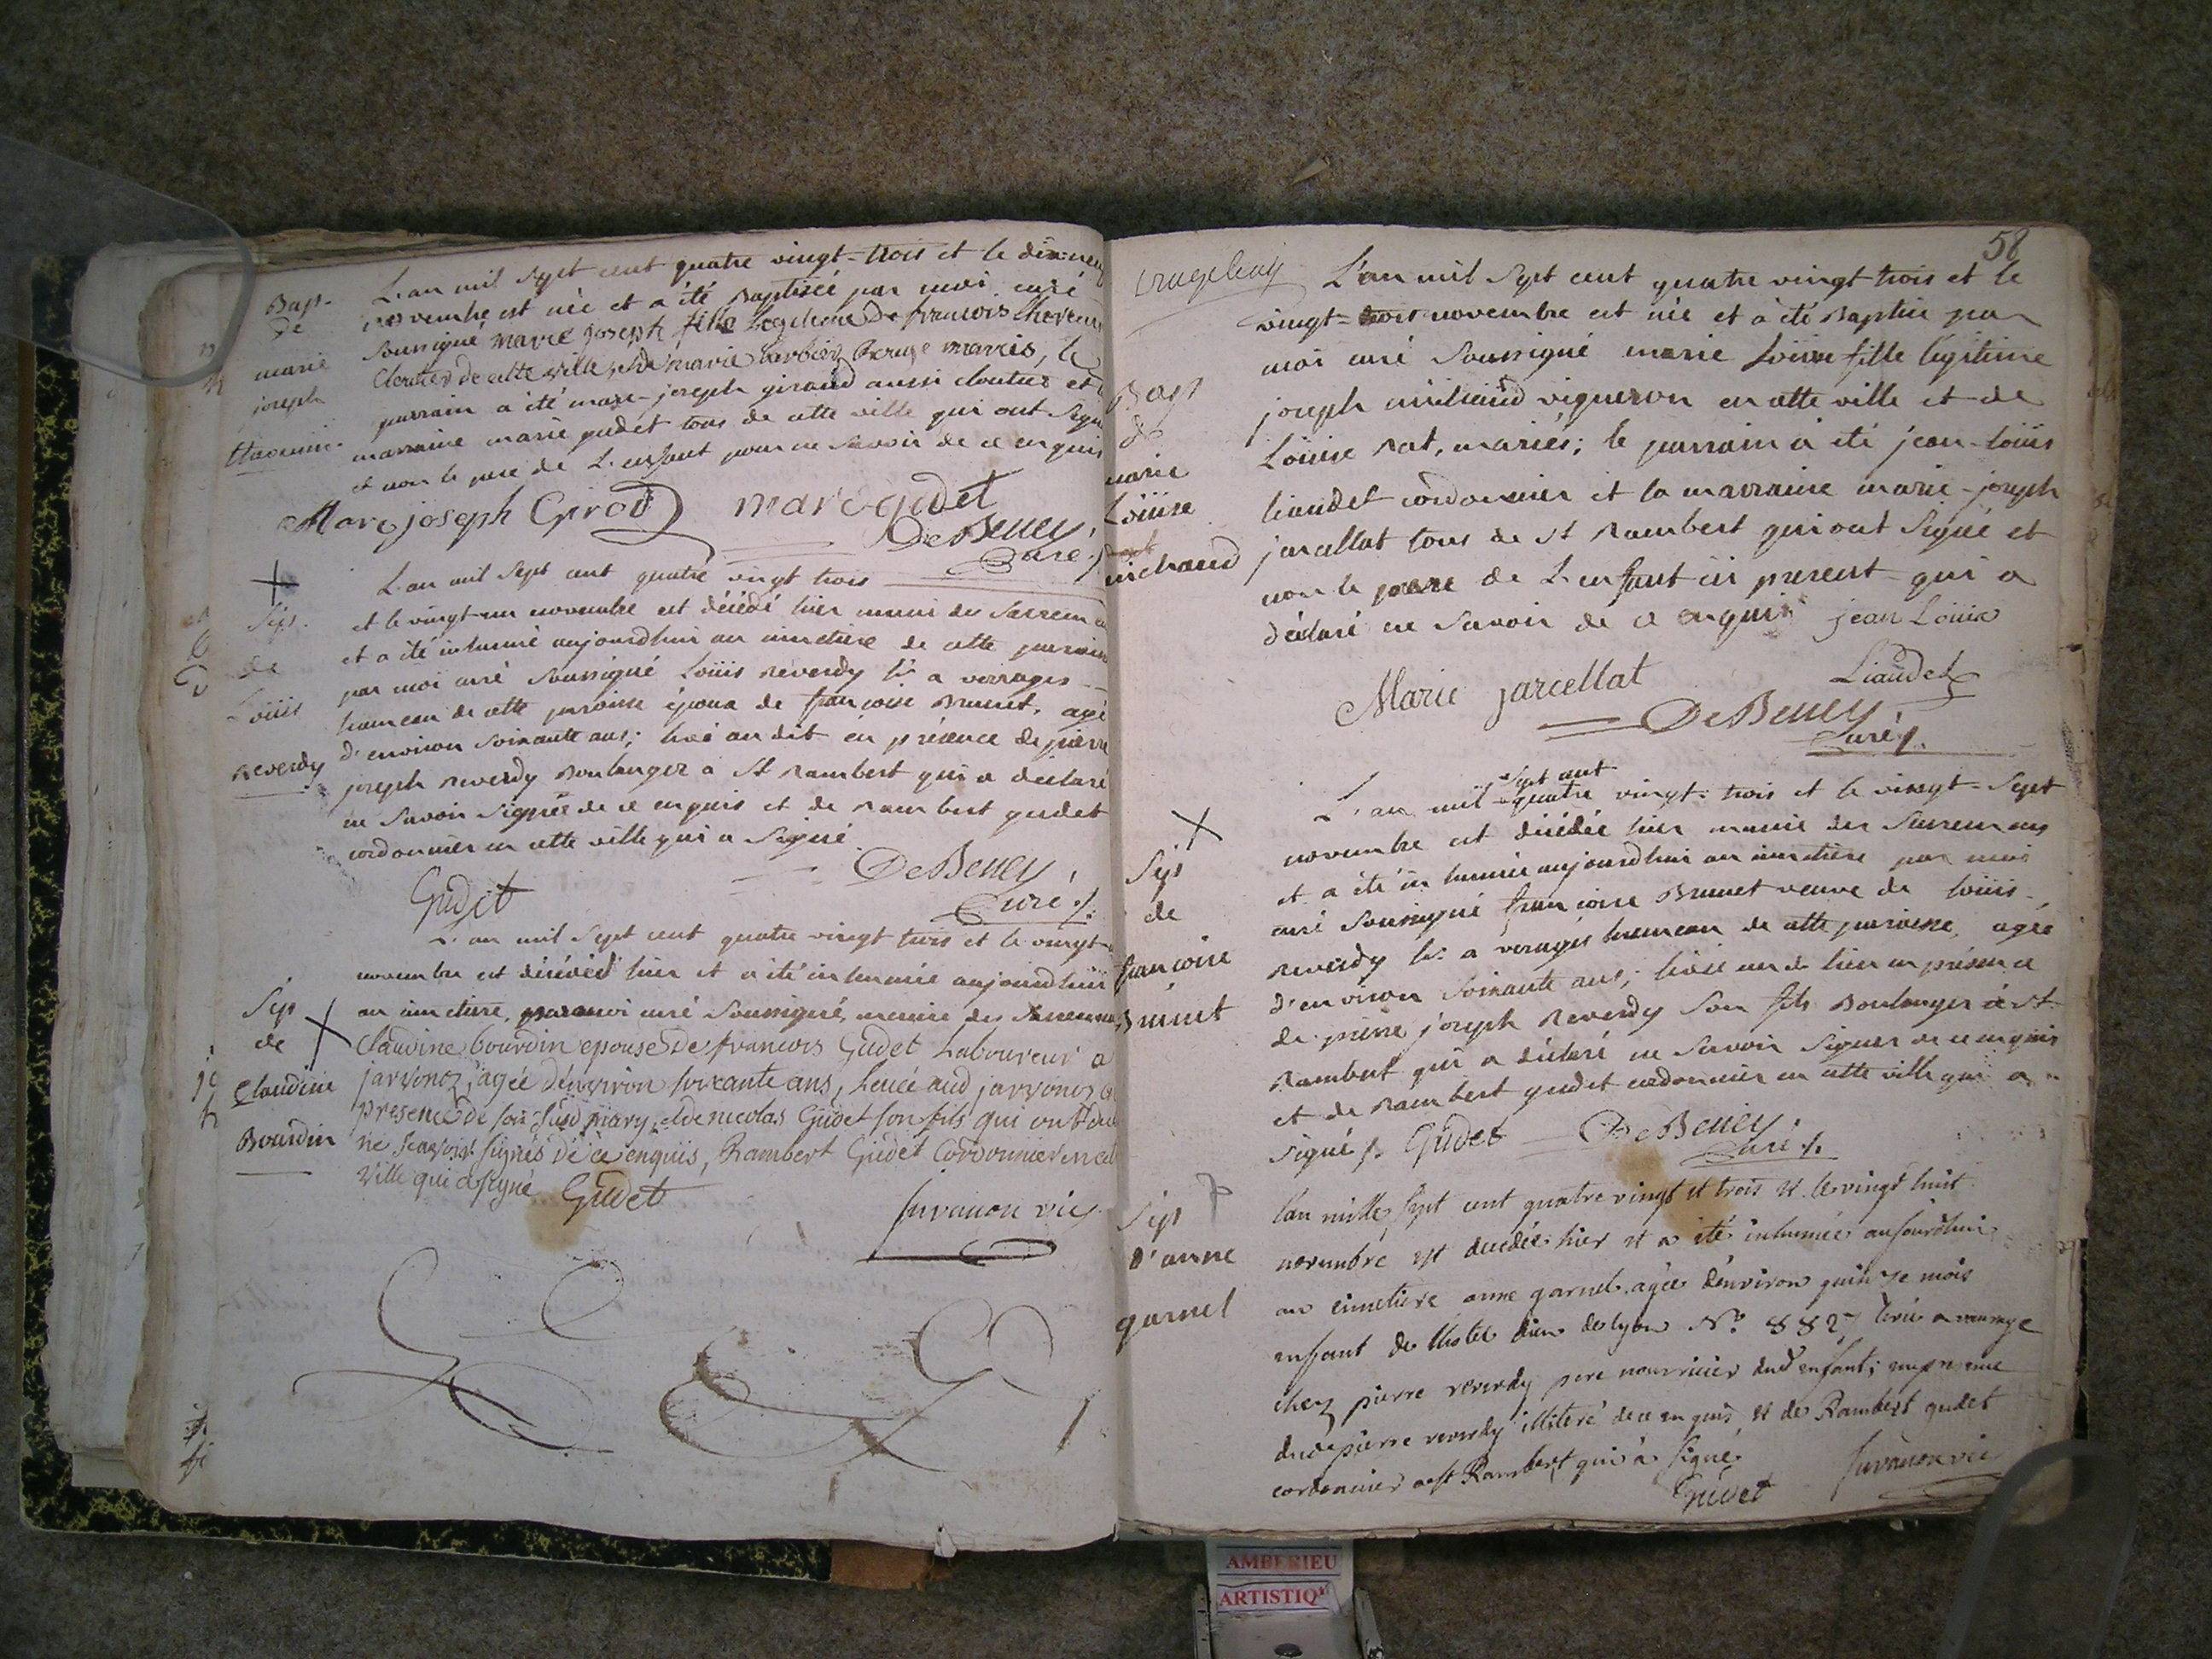 Bap.
de
marie
joseph
L'an mil sept cent quatre vingt-trois et le dix-neuf
novembre est née et a été Baptisée par moi curé
soussigné marie joseph fille legitime de francois
cloutier de cette ville, et de marie mariés, le
parrain a été marc-joseph giroud aussi cloutier et
marraine marie gudet tous de cette ville qui ont signé
et non le pere de L'enfant pour ne savoir de ce enquis
Marc joseph Girod marie gudet
DeBeney
Curé
Sép.
de
Loüis
Reverdy
L'an mil sept cent quatre vingt trois
et le vingt-un novembre est décédé hier muni des sacremens
et a été inhumé aujourdhui au cimetiere de cette paroisse
par moi curé soussigné Loüis Reverdy h.t a verages
hameau de cette paroisse époux de françoise Brunet, agé
d'environ soixante ans; levé au dit en présence de pierre
joseph Reverdy Boulanger a St Rambert qui a déclaré
ne savoir signer de ce enquis et de Rambert gudet
cordonnier en cette ville qui a signé
Gudet
DeBeney
Curé
Sep
de
Claudine
Bourdin
L'an mil sept cent quatre vingt trois et le vingt-
novembre est décédée hier et a été inhumée aujourdhui
au cimetiere, par moi curé soussigné, munie des
Claudine bourdin epouse de francois Gudet Laboureur a
jarvonoz, agée d'environ soixante ans, levée aud jarvonoz en
presence de son susd mary, et de nicolas Gudet son fils qui ont
ne sçavoir signés de ce enquis, Rambert Gudet Cordonnier en
Ville qui a signé Gudet
vic
58
Bapt
de
marie
Loüise
michaud
L'an mil sept cent quatre vingt trois et le
vingt-trois novembre est née et a été Baptisée par
moi curé soussigné marie Loüise fille légitime
joseph michaud vigneron en cette ville et de
Loüise Rat, mariés; le parrain a été jean-loüis
liaudet cordonnier et la marraine marie-joseph
jarcellat tous de St Rambert qui ont signé et
non le pere de L'enfant ici present qui a
déclaré ne savoir de ce enquis jean Loüis
Liaudet
Marie jarcellat
DeBeney
Curé
Sep
de
françoise
Brunet
sept cent
L'an mil quatre vingt-trois et le vingt-sept
novembre est décédée hier munie des sacremens
et a été inhumée aujourdhui au cimetiere par moi
curé soussigné françoise Brunet veuve de Loüis
Reverdy h.t a verages hameau de cette paroisse, agée
d'environ soixante ans; levée au d. lieu en présence
de pierre joseph Reverdy son fils Boulanger à St
Rambert qui a déclaré ne savoir signer de ce enquis
et de Rambert gudet cordonnier en cette ville qui a
signé Gudet DeBeney
Curé
Sep
d'anne
garnel
lan mille sept cent quatre vingt et trois et le vingt huit
novembre est decedée hier et a été inhumée aujourdhui
au cimetiere anne garnel agée d'environ quinze mois
enfant de lhotel dieu de lyon N° 8827 levée a
chez pierre reverdy pere nourricier dud enfant; en presence
dud pierre reverdy illiteré de ce enquis et de Rambert gudet
cordonnier a st Rambert qui a signé
Gudet
vic
AMBERIEU
ARTISTIQ